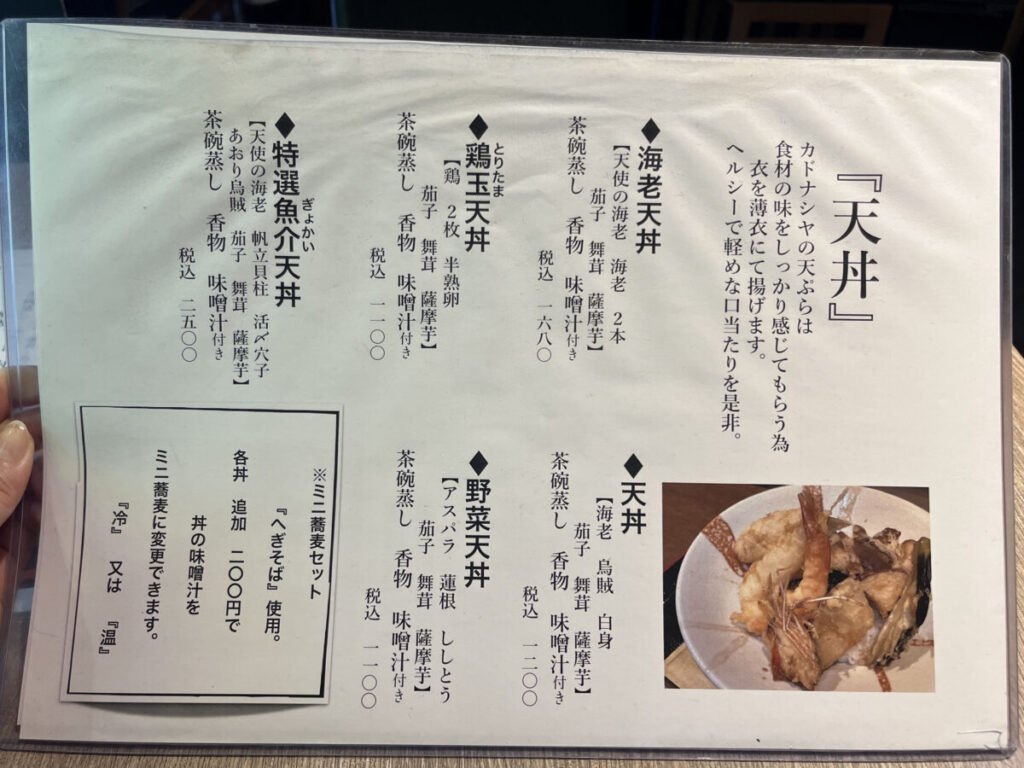 『天丼』
カドナシヤの天ぷらは
食材の味をしっかり感じてもらう為
衣を薄衣にて揚げます。
ヘルシーで軽めな口当たりを是非。
◆海老天丼
【天使の海老 海老 2本
茄子 舞茸 薩摩芋】
茶碗蒸し 香物 味噌汁付き
税込 一六八〇
◆天丼
【海老 烏賊 白身
茄子 舞茸 薩摩芋】
茶碗蒸し 香物 味噌汁付き
税込 一二〇〇
◆鶏玉天丼
とりたま
【鶏 2枚 半熟卵
茄子 舞茸 薩摩芋】
茶碗蒸し 香物 味噌汁付き
税込 一一〇〇
◆野菜天丼
【アスパラ 蓮根 ししとう
茄子 舞茸 薩摩芋】
茶碗蒸し 香物 味噌汁付き
税込 一一〇〇
◆特選魚介天丼
ぎょかい
【天使の海老 帆立貝柱 活〆穴子
あおり烏賊 茄子 舞茸 薩摩芋】
茶碗蒸し 香物 味噌汁付き
税込 二五〇〇
※ミニ蕎麦セット
『へぎそば』使用。
各丼 追加 二〇〇円で
丼の味噌汁を
ミニ蕎麦に変更できます。
『冷』 又は 『温』